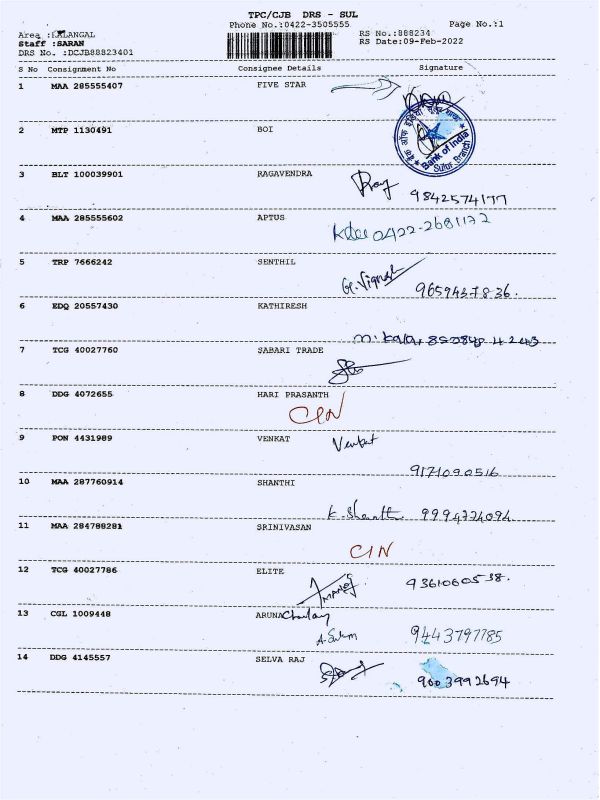 TPC/CJB DRS - SUL
Phone No.:0422-3505555 Page No.:1
Area :KALANGAL RS No.:888234
Staff :SARAN RS Date:09-Feb-2022
DRS No. :DCJB88823401
S No Consignment No Consignee Details Signature
1 MAA 285555407 FIVE STAR
2 MTP 1130491 BOI
Bank of India
Sulur Branch
3 BLT 100039901 RAGAVENDRA
9842574177
4 MAA 285555602 APTUS
0422-2681172
5 TRP 7666242 SENTHIL
G. Vignesh 9659437836.
6 EDQ 20557430 KATHIRESH
7 TCG 40027760 SABARI TRADE
8 DDG 4072655 HARI PRASANTH
CIN
9 PON 4431989 VENKAT Venkat
9171090516
10 MAA 287760914 SHANTHI
K. Shanthi 9994774094
11 MAA 284788281 SRINIVASAN
CIN
12 TCG 40027786 ELITE
MANOJ 9361060538.
13 CGL 1009448 ARUNA
9443797785
14 DDG 4145557 SELVA RAJ
9003992694